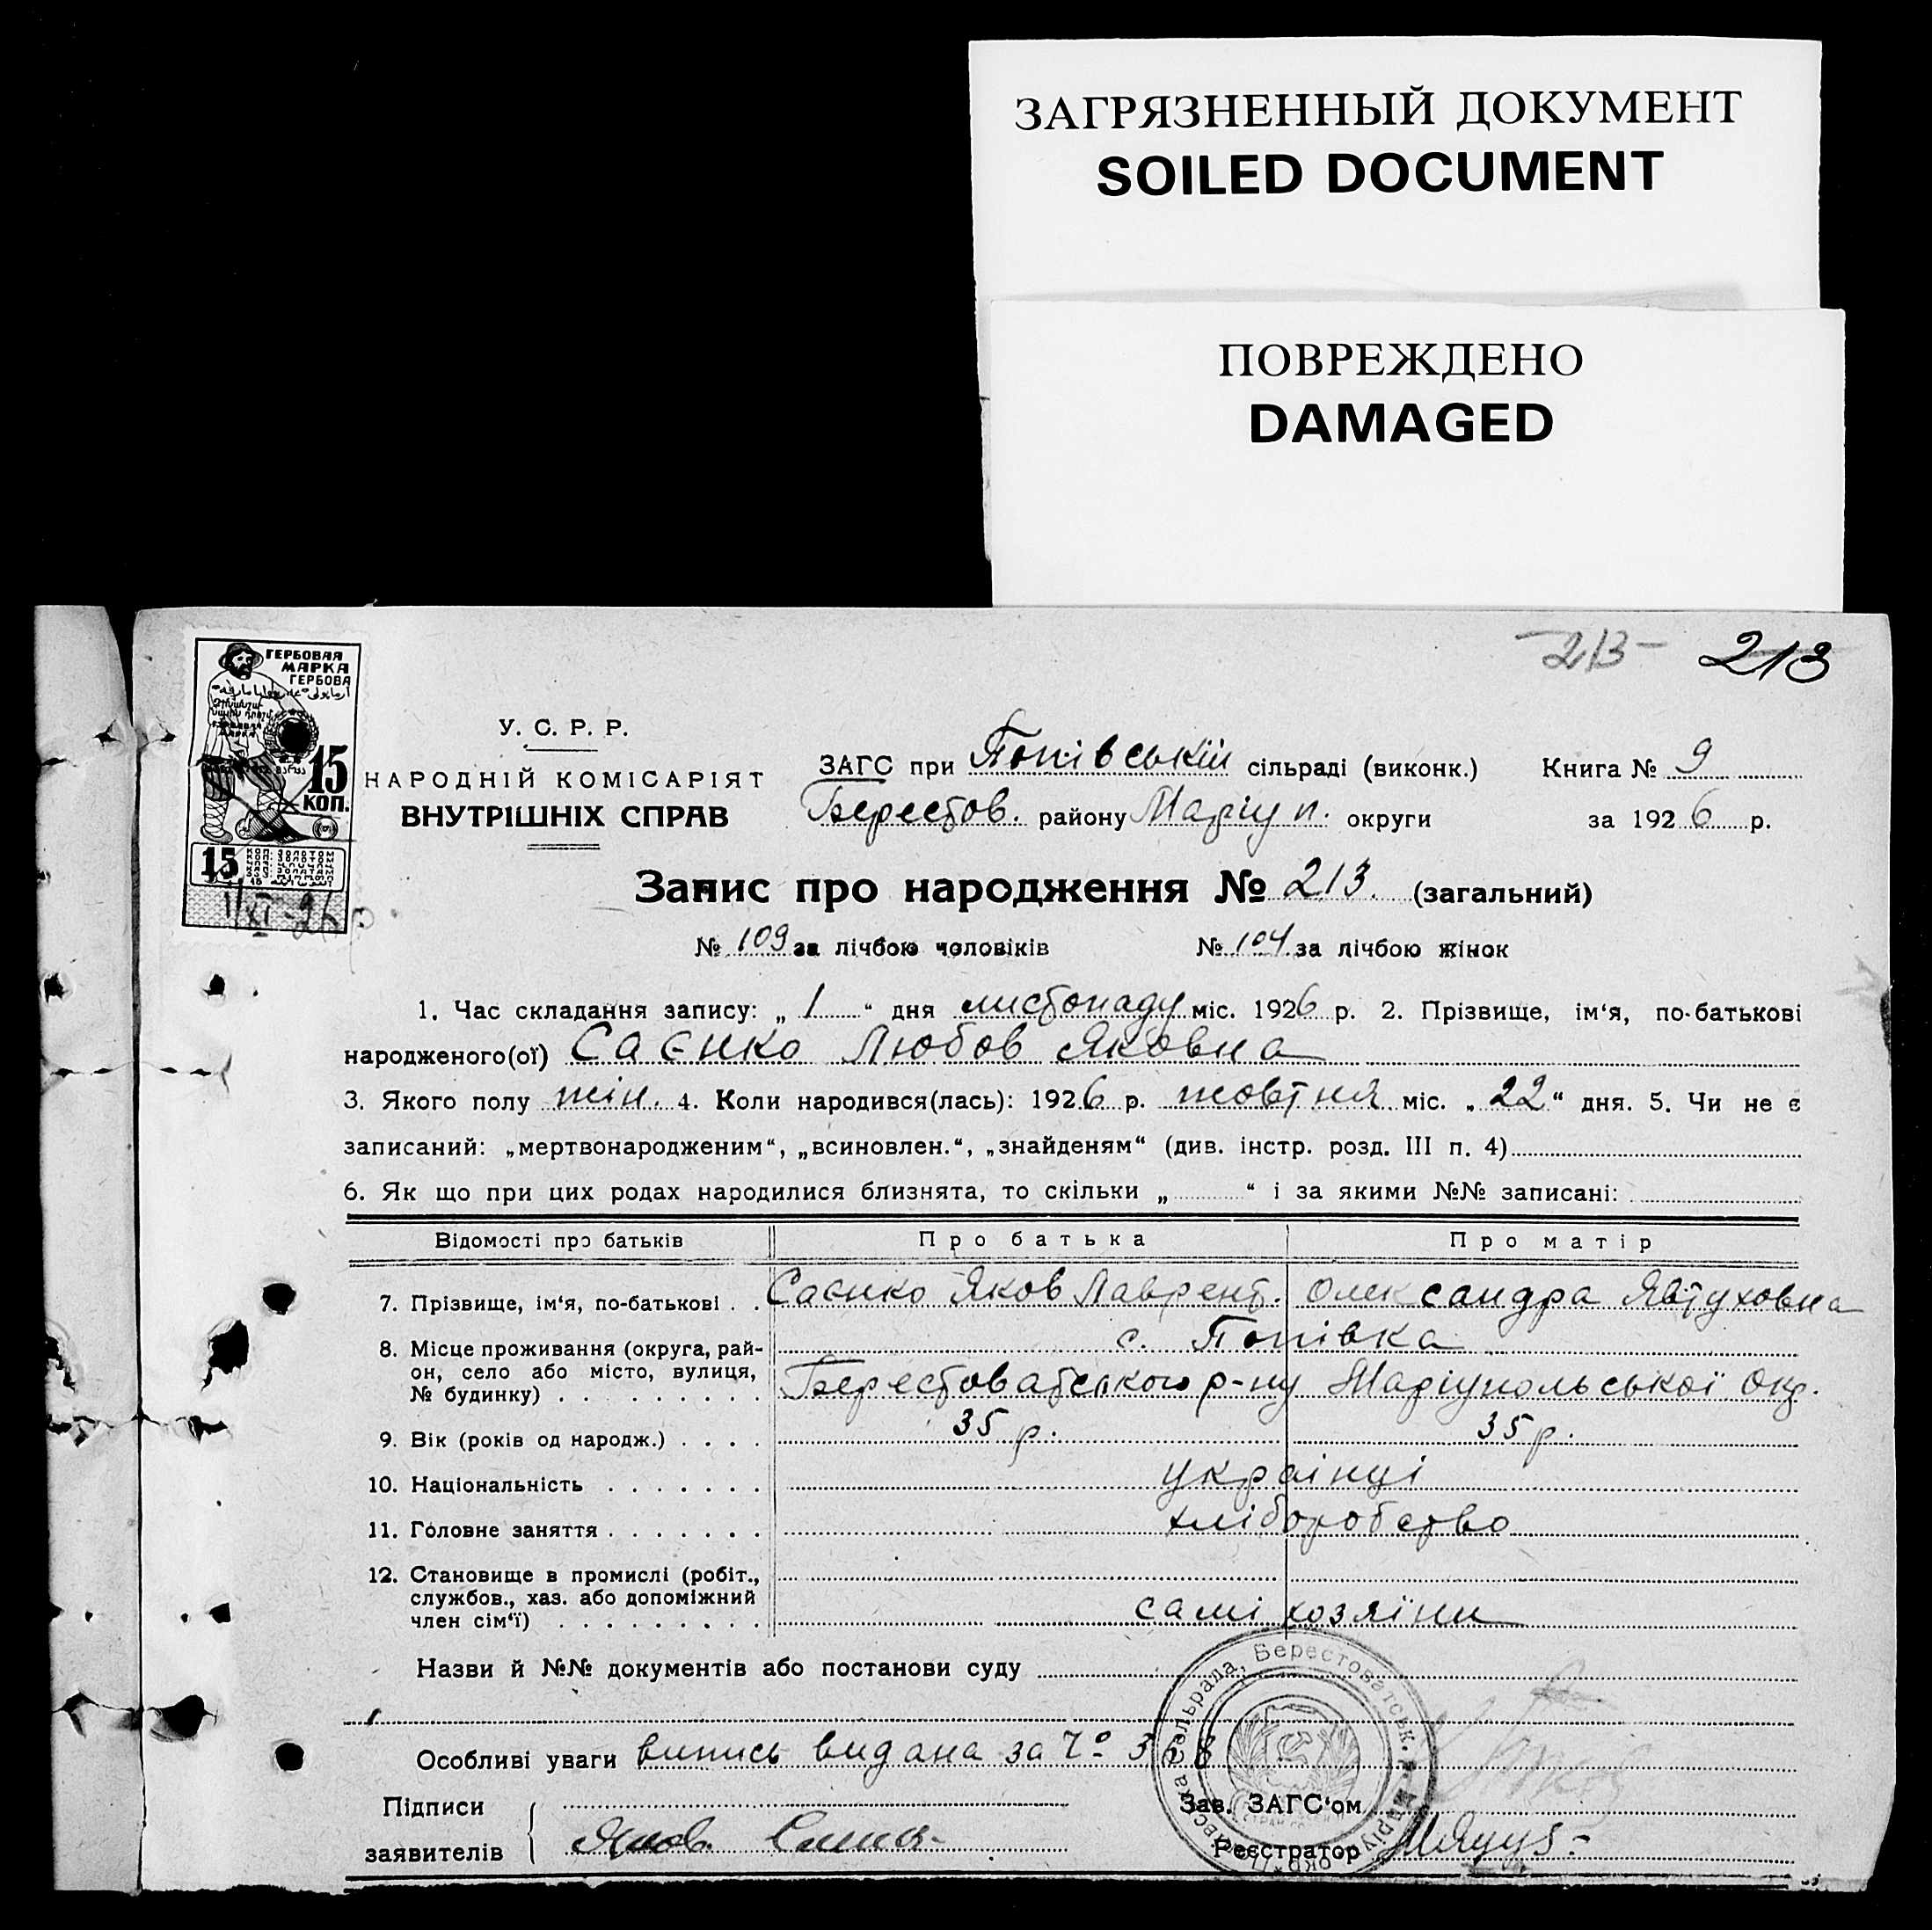 ЗАГРЯЗНЕННЫЙ ДОКУМЕНТ
SOILED DOCUMENT
ПОВРЕЖДЕНО
DAMAGED
-213- 213
ГЕРБОВАЯ
МАРКА
ГЕРБОВА
15
КОП.
15
1/XI-26 р.
У. С. Р. Р.
НАРОДНІЙ КОМІСАРІЯТ
ВНУТРІШНІХ СПРАВ
ЗАГС при Попівській сільраді (виконк.) Книга № 9
Берестов. району Маріуп. округи за 1926 р.
Запис про народження № 213. (загальний)
№ 109 за лічбою чоловіків № 104 за лічбою жінок
1. Час складання запису: „ 1 “ дня листопаду міс. 1926 р. 2. Прізвище, ім‘я, по-батькові
народженого(ої) Саєнко Любов Яковна
3. Якого полу жін. 4. Коли народився(лась): 1926 р. жовтня міс. „ 22 “ дня. 5. Чи не є
записаний: „мертвонародженим“, „всиновлен.“, „знайденям“ (див. інстр. розд. III п. 4)
6. Як що при цих родах народилися близнята, то скільки „ “ і за якими №№ записані:
Відомості про батьків Про батька Про матір
7. Прізвище, ім‘я, по-батькові . . Саєнко Яков Лаврент. Олександра Явтуховна
8. Місце проживання (округа, рай- с. Попівка
он, село або місто, вулиця,
№ будинку) . . . . . . . . . Берестоватського р-ну Маріупольської Окр.
9. Вік (років од народж.) . . . . 35 р. 35 р.
10. Національність . . . . . . . українці
11. Головне заняття . . . . . . . хліборобство
12. Становище в промислі (робіт.,
службов., хаз. або допоміжний
член сім‘ї) . . . . . . . . . самі хозяїни
Назви й №№ документів або постанови суду
Особливі уваги випись видана за № 368
Підписи
заявителів Яков
Зав. ЗАГС‘ом
Реєстратор
сільрада, Берестоватськ.